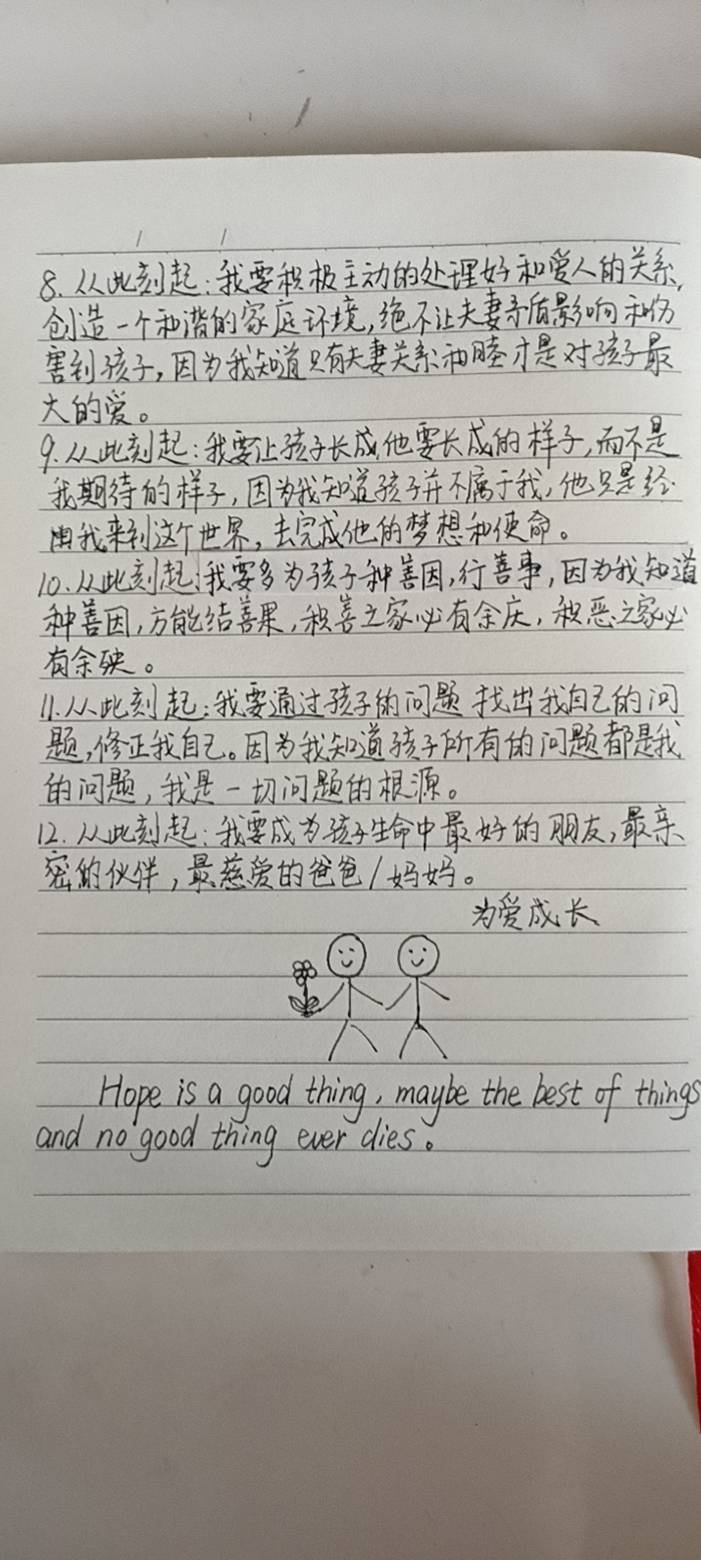 8. 从此刻起:我要积极主动的处理好和爱人的关系,
创造一个和谐的家庭环境,绝不让夫妻矛盾影响和伤
害到孩子,因为我知道只有夫妻关系和睦才是对孩子最
大的爱。
9. 从此刻起:我要让孩子长成他要长成的样子,而不是
我期待的样子,因为我知道孩子并不属于我,他只是经
由我来到这个世界,去完成他的梦想和使命。
10. 从此刻起:我要多为孩子种善因,行善事,因为我知道
种善因,方能结善果,积善之家必有余庆,积恶之家必
有余殃。
11. 从此刻起:我要通过孩子的问题 找出我自己的问
题,修正我自己。因为我知道孩子所有的问题都是我
的问题,我是一切问题的根源。
12. 从此刻起:我要成为孩子生命中最好的朋友,最亲
密的伙伴,最慈爱的爸爸/妈妈。
为爱成长
Hope is a good thing, maybe the best of things
and no good thing ever dies。